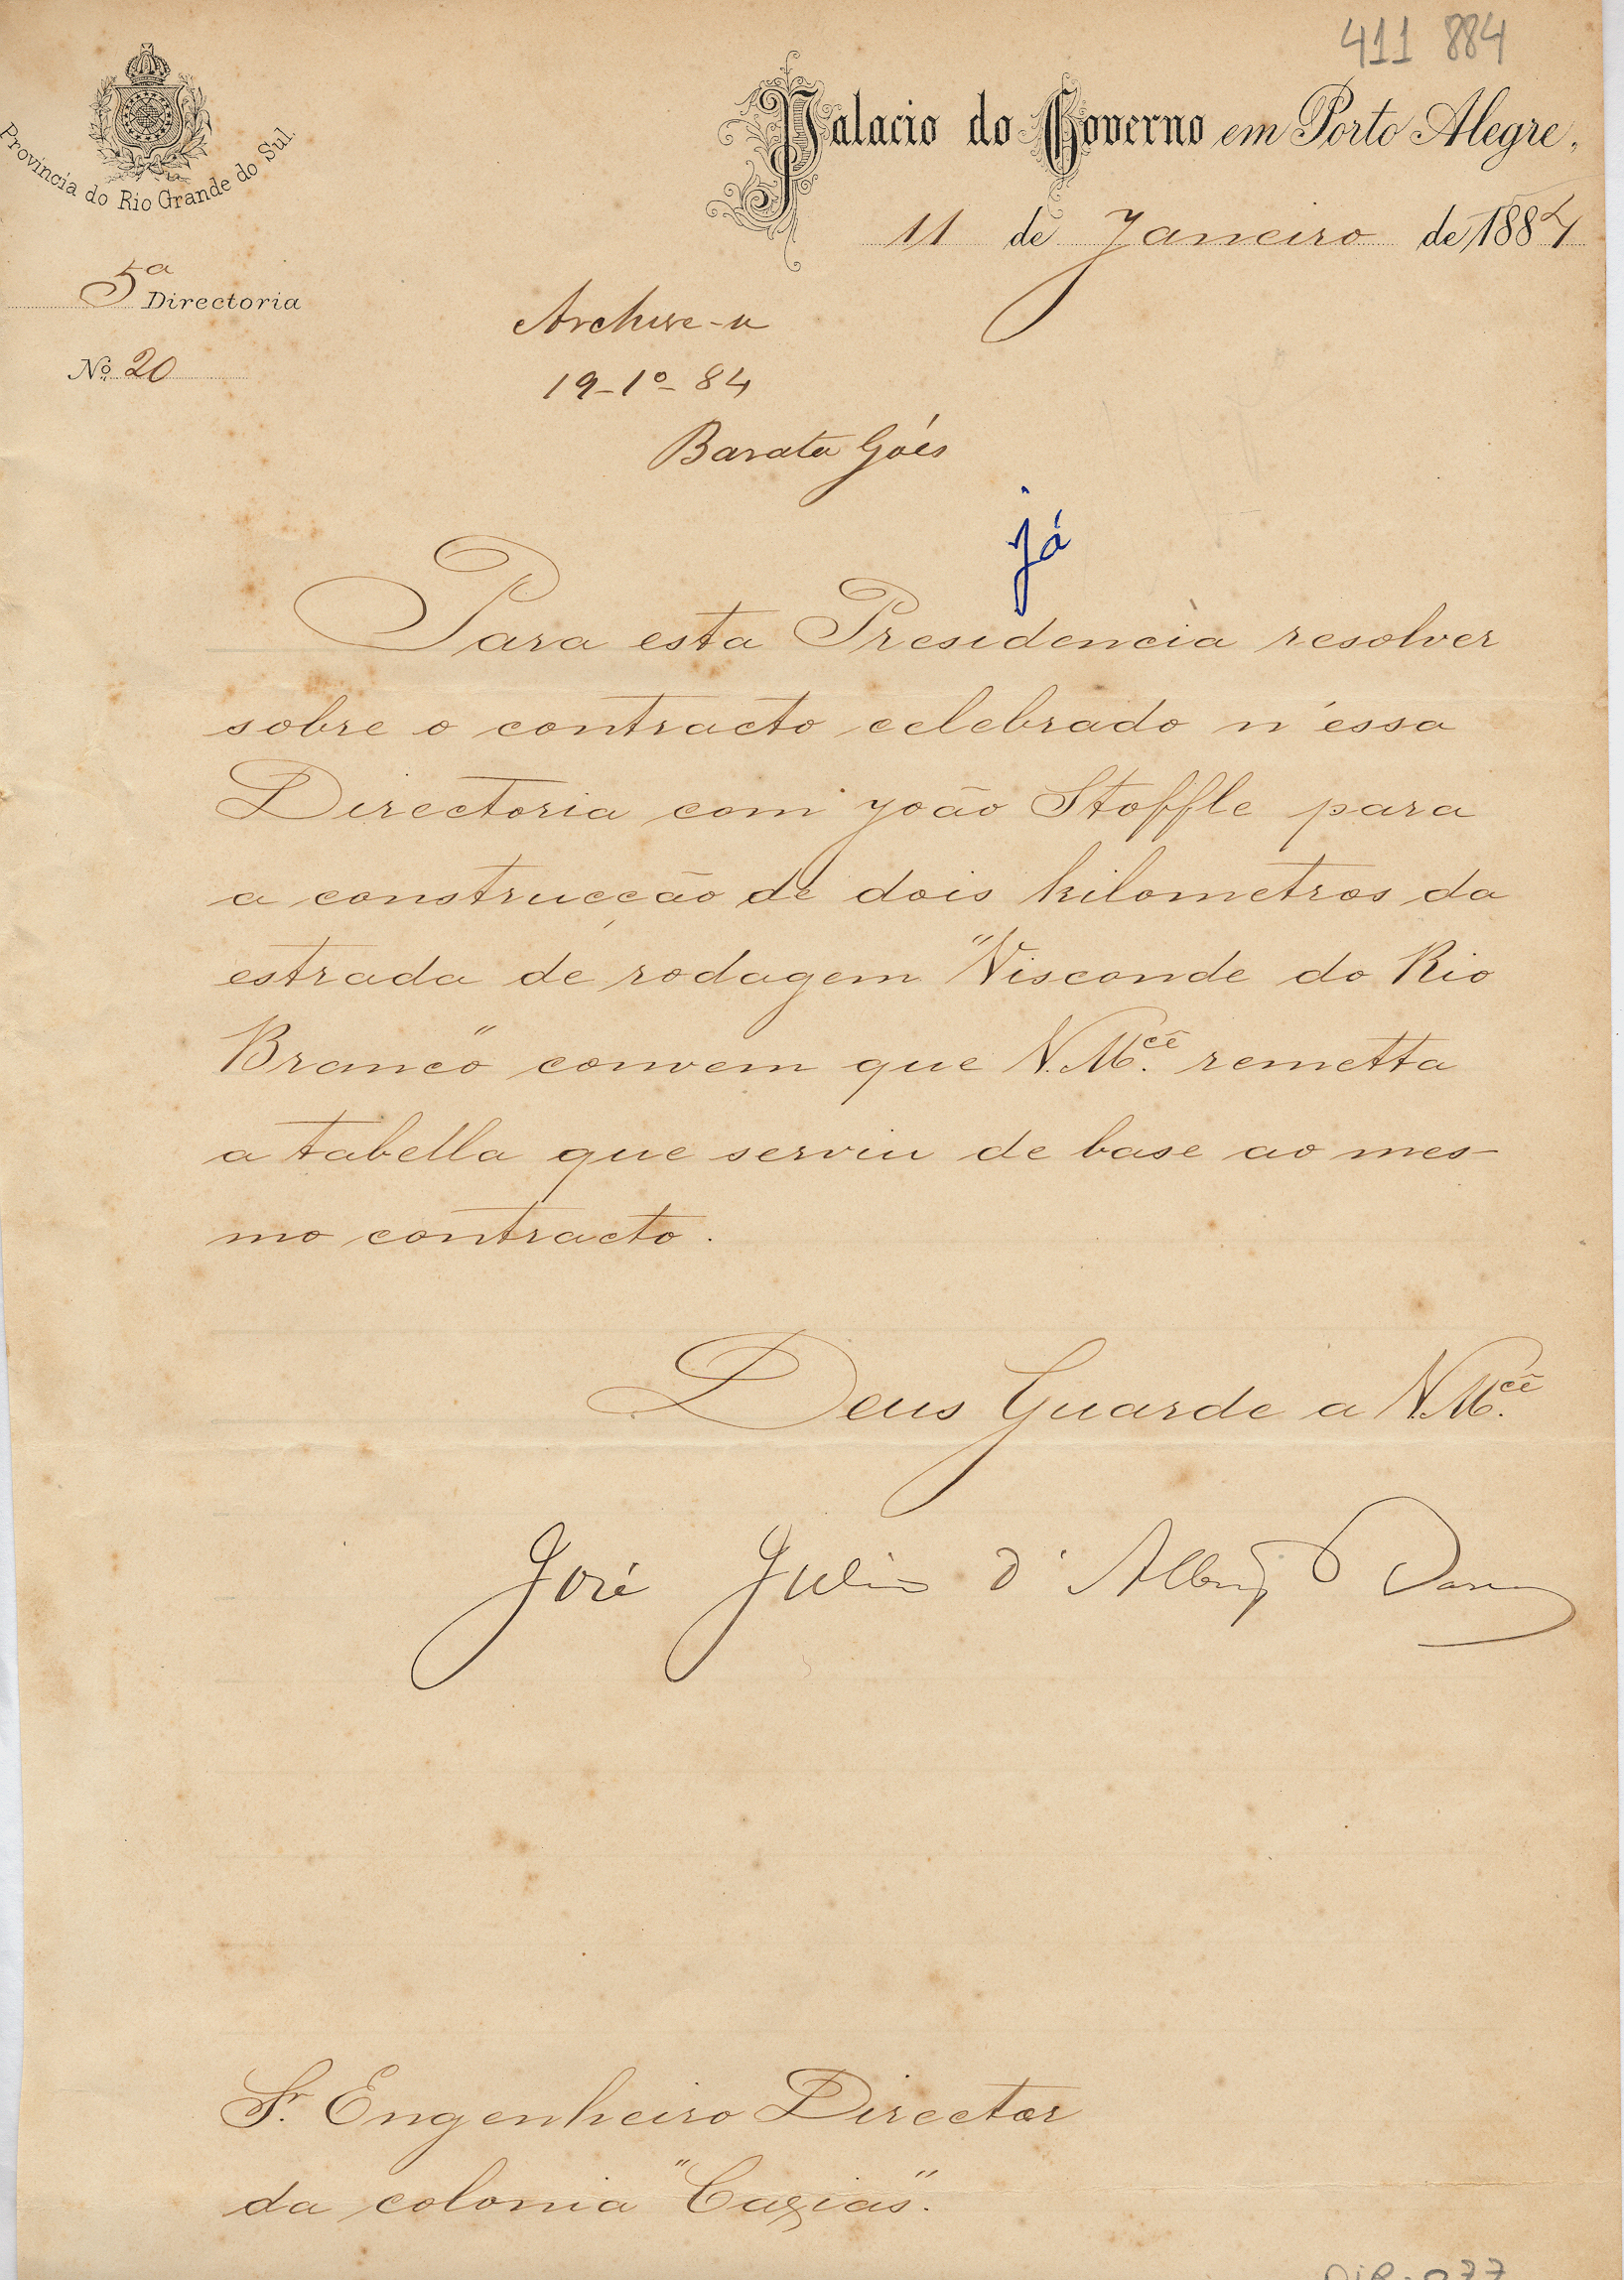 411 884
Provincia do Rio Grande do Sul.
Palacio do Governo em Porto Alegre,
11 de Janeiro de 1884
5ª Directoria
Nº 20
Archive-se
19-1º-84
Barata Góes
já
Para esta Presidencia resolver
sobre o contracto celebrado n'essa
Directoria com João Stoffle para
a construcção de dois kilometros da
estrada de rodagem "Visconde do Rio
Branco" convem que V. M.cê remetta
a tabella que serviu de base ao mes-
mo contracto.
Deus Guarde a V. M.cê
José Julio d'Albuqe
Sr. Engenheiro Director
da colonia "Caxias".
DIR. 077